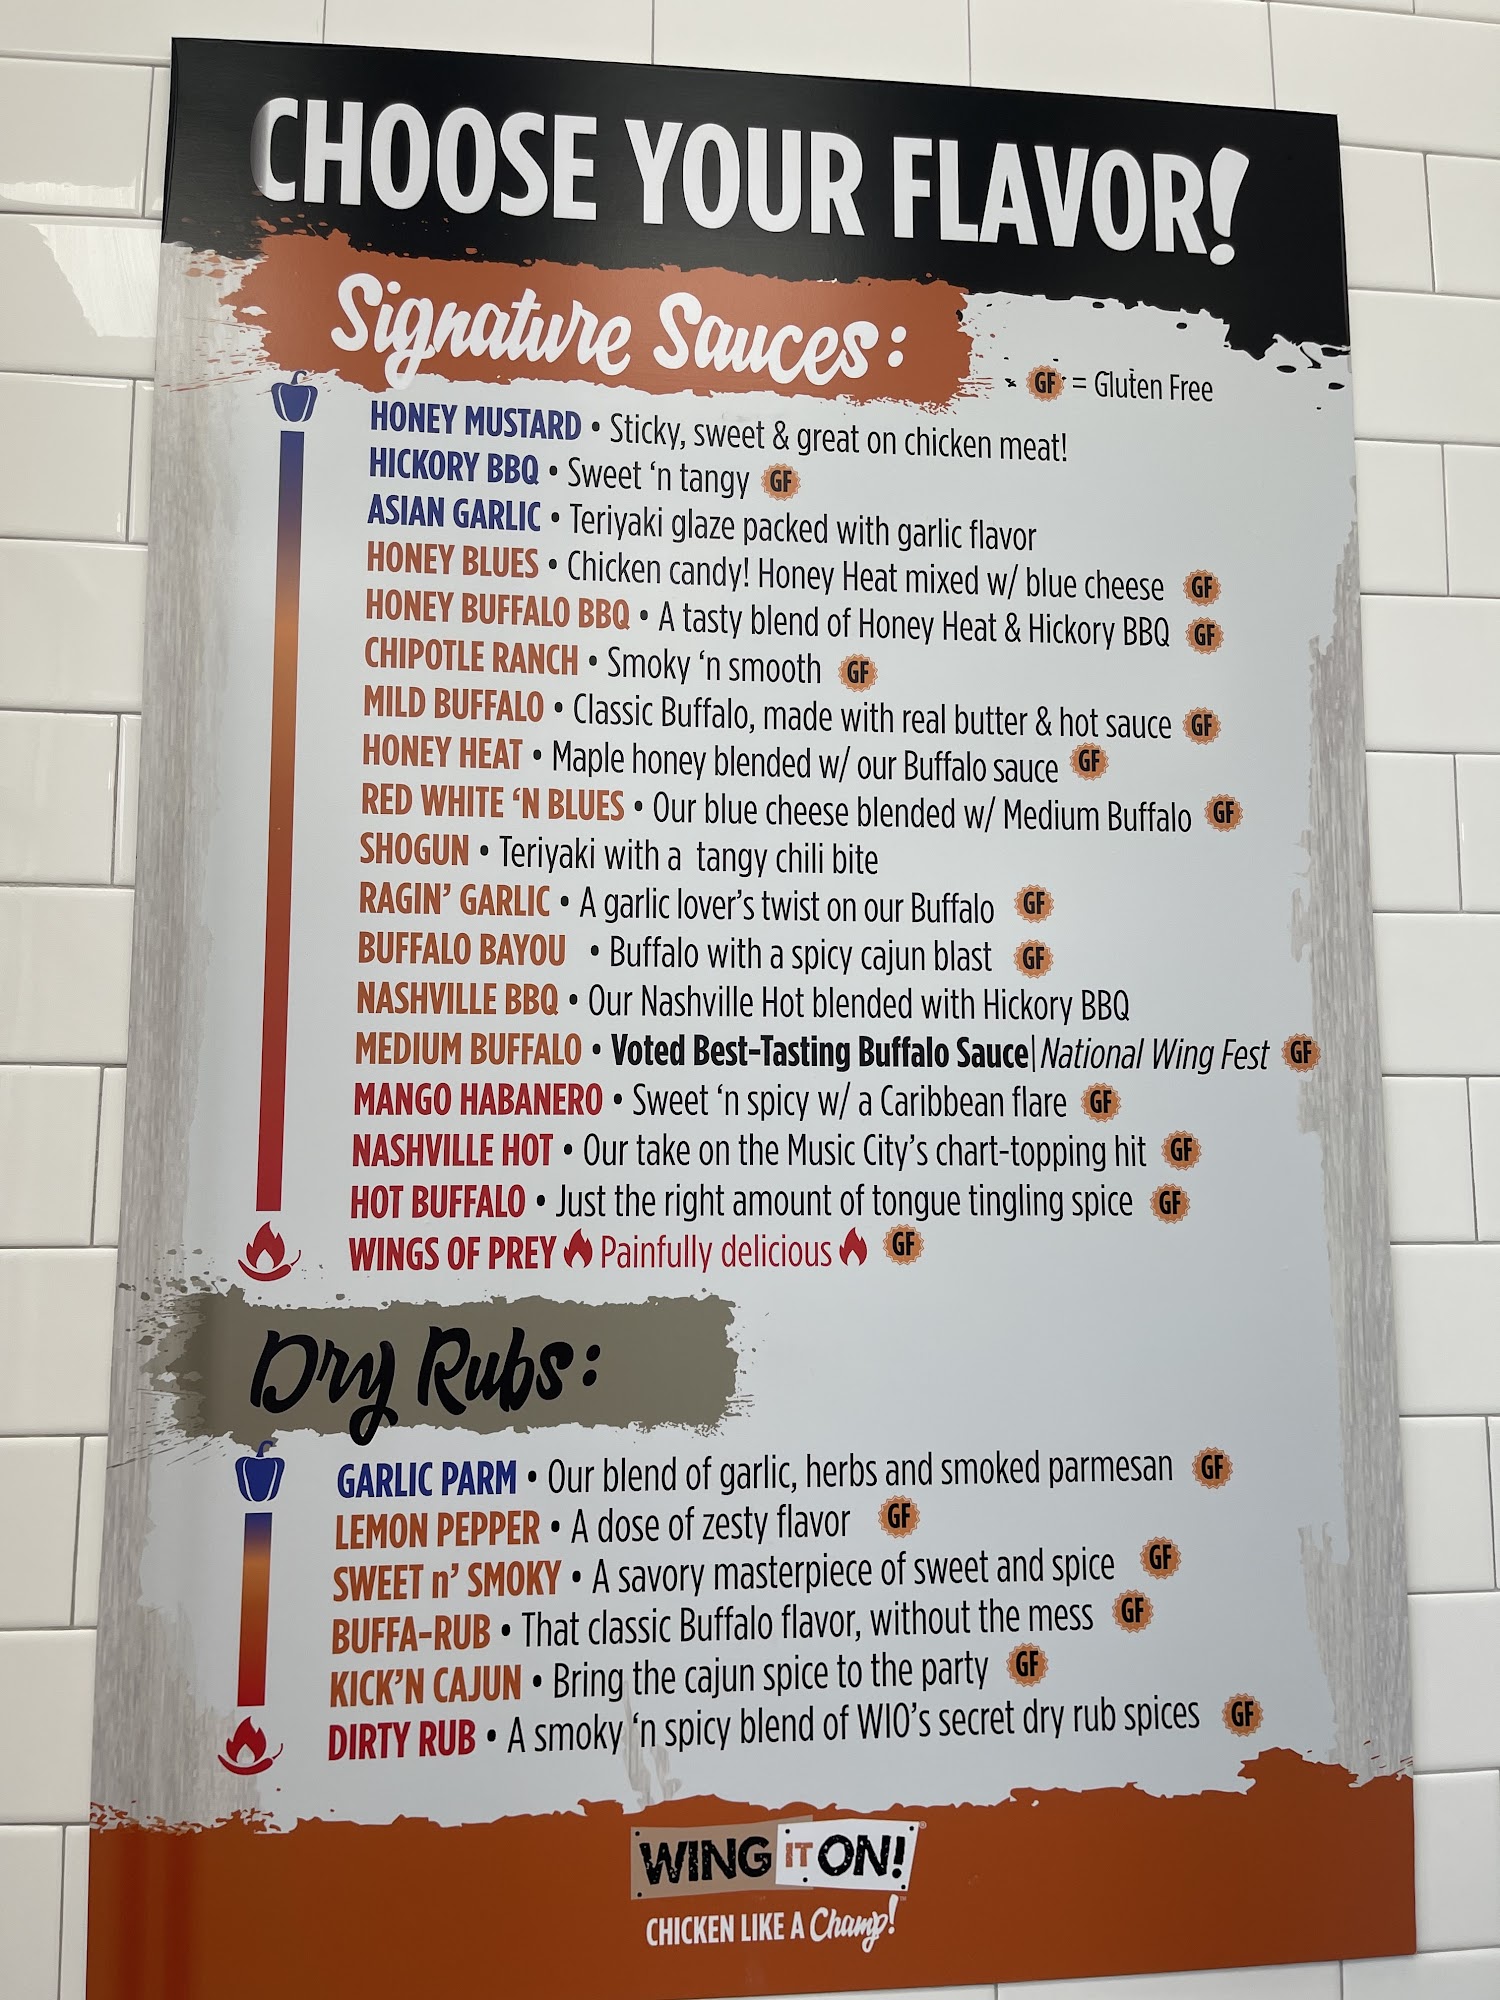 CHOOSE YOUR FLAVOR!
Signature Sauces:
GF = Gluten Free
HONEY MUSTARD • Sticky, sweet & great on chicken meat!
HICKORY BBQ • Sweet ‘n tangy GF
ASIAN GARLIC • Teriyaki glaze packed with garlic flavor
HONEY BLUES • Chicken candy! Honey Heat mixed w/ blue cheese GF
HONEY BUFFALO BBQ • A tasty blend of Honey Heat & Hickory BBQ GF
CHIPOTLE RANCH • Smoky ‘n smooth GF
MILD BUFFALO • Classic Buffalo, made with real butter & hot sauce GF
HONEY HEAT • Maple honey blended w/ our Buffalo sauce GF
RED WHITE ‘N BLUES • Our blue cheese blended w/ Medium Buffalo GF
SHOGUN • Teriyaki with a tangy chili bite
RAGIN’ GARLIC • A garlic lover’s twist on our Buffalo GF
BUFFALO BAYOU • Buffalo with a spicy cajun blast GF
NASHVILLE BBQ • Our Nashville Hot blended with Hickory BBQ
MEDIUM BUFFALO • Voted Best-Tasting Buffalo Sauce|National Wing Fest GF
MANGO HABANERO • Sweet ‘n spicy w/ a Caribbean flare GF
NASHVILLE HOT • Our take on the Music City’s chart-topping hit GF
HOT BUFFALO • Just the right amount of tongue tingling spice GF
WINGS OF PREY Painfully delicious GF
Dry Rubs:
GARLIC PARM • Our blend of garlic, herbs and smoked parmesan GF
LEMON PEPPER • A dose of zesty flavor GF
SWEET n’ SMOKY • A savory masterpiece of sweet and spice GF
BUFFA-RUB • That classic Buffalo flavor, without the mess GF
KICK’N CAJUN • Bring the cajun spice to the party GF
DIRTY RUB • A smoky ‘n spicy blend of WIO’s secret dry rub spices GF
WING IT ON!®
CHICKEN LIKE A Champ!™